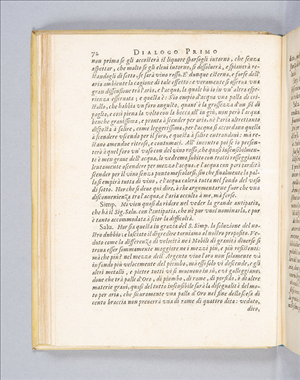 72 DIALOGO PRIMO
non prima se gli accosterà il liquore sparsogli intorno, che senza
aspettar, che molto se gli elevi intorno, si dissolverà, e spianerà re-
standogli di sotto, se sarà vino rosso. E dunque esterna, e forse dell'
aria ambiente la cagione di tale effetto: e veramente si osserva una
gran dissensione tra l'aria, e l'acqua, la quale hò io in un'altra espe-
rienza osservata; e questa è: S'io empio d'acqua una palla di cri-
stallo, che habbia un foro angusto, quant'è la grossezza d'un fil di
paglia, e così piena la volto con la bocca all'in giù, non però l'acqua
benche gravissima, e pronta à scender per aria, nè l'aria altrettanto
disposta à salire, come leggierissima, per l'acqua si accordano quella
à scendere uscendo pel foro, e questa à salire entrandovi: ma re-
stano amendue ritrose, e contumaci. All'incontro poi se io presente-
rò à quel foro un vaso con del vino rosso, che quasi insensibilmen-
te è men grave dell'acqua, lo vedremo subito con tratti rosseggianti
lentamente ascendere per mezzo l'acqua: e l'acqua con pari tardità
scender per il vino senza punto mescolarsi, sin che finalmente la pal-
la si empirà tutta di vino, e l'acqua calerà tutta nel fondo del vaso
di sotto. Hor che si deve qui dire, ò che argumentarne fuor che una
disconvenienza tra l'acqua, e l'aria occulta à me, ma forse.
Simp. Mi vien quasi da ridere nel veder la grande antipatia,
che hà il Sig. Salv. con l'antipatia, che nè pur vuol nominarla, e pur
è tanto accommodata à scior la difficoltà.
Salv. Hor sia questa in grazia del S. Simp. la soluzione del no-
stro dubbio: e lasciato il digredire torniamo al nostro proposito. Ve-
duto come la differenza di velocità ne i Mobili di gravità diverse si
trova esser sommamente maggiore ne i mezzi più, e più resistenti:
mà che più? nel mezzo dell'Argento vivo l'oro non solamente và
in fondo più velocemente del piombo, mà esso solo vi descende, e gli
altri metalli, e pietre tutti vi si muovono in sù, e vi galleggiano,
dove che trà palle d'oro, di piombo, di rame, di porfido, ò di altre
materie gravi, quasi del tutto insensibile sarà la disegualità del mo-
to per aria, che sicuramente una palla d'Oro nel fine della scesa di
cento braccia non preverrà una di rame di quattro dita: veduto,
dico,